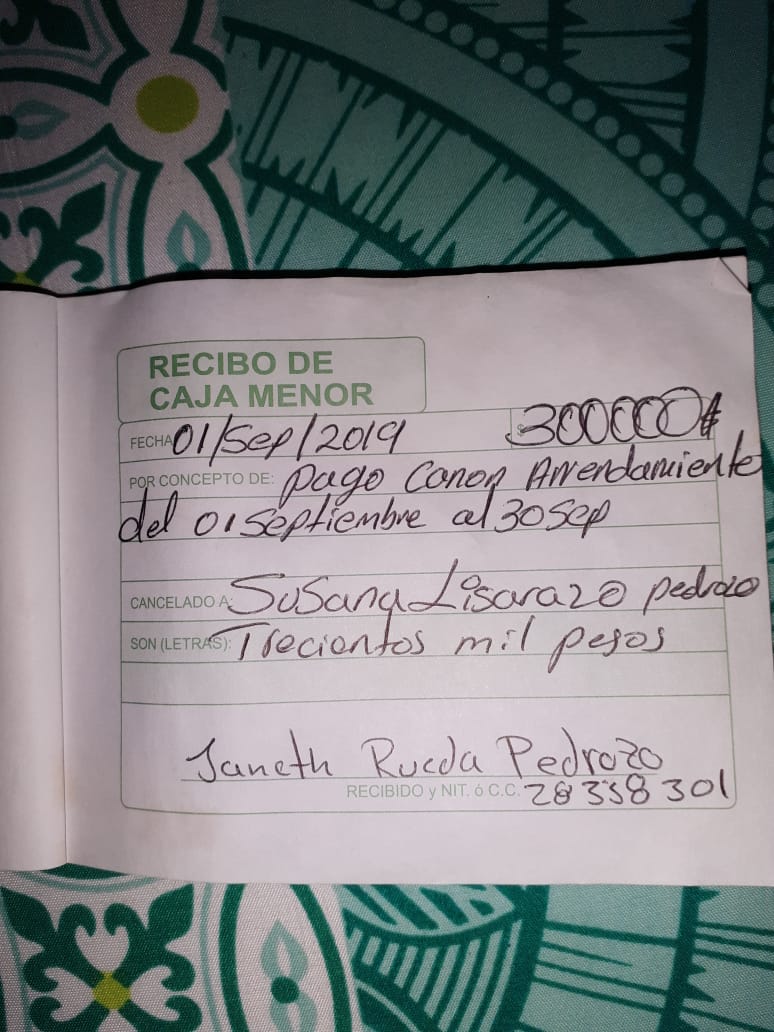 RECIBO DE
CAJA MENOR
FECHA 01/Sep/2019 $ 300000$
POR CONCEPTO DE: pago Canon Arrendamiente
del 01 Septiembre al 30 Sep
CANCELADO A: Susana Lisarazo pedrozo
SON (LETRAS): Trecientos mil pesos
Janeth Rueda Pedrozo
RECIBIDO y NIT. ó C.C. 28358301